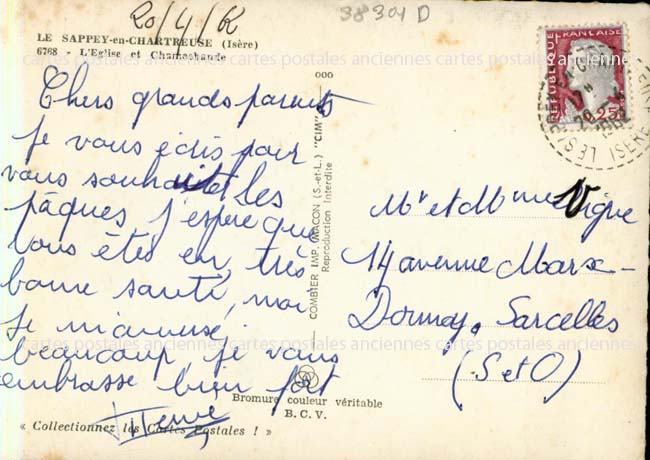 20/4/62
38301 D
LE SAPPEY-en-CHARTREUSE (Isère)
6768 - L'Eglise et Chamechaude
Chers grands parents
je vous écris pour
vous souhaiter les
pâques j'espère que
vous êtes en très
bonne santé, moi
je m'amuse
beaucoup je vous
embrasse bien fort
Hervé
« Collectionnez les Cartes Postales ! »
COMBIER IMP. MACON (S.-et-L.) "CIM"
Reproduction Interdite
Bromure couleur véritable
B. C. V.
REPUBLIQUE FRANÇAISE
0,25
ISERE
Mr et Mme Vigne
14 avenue Marx-
Dormoy. Sarcelles
(S et O)
cartes postales anciennes